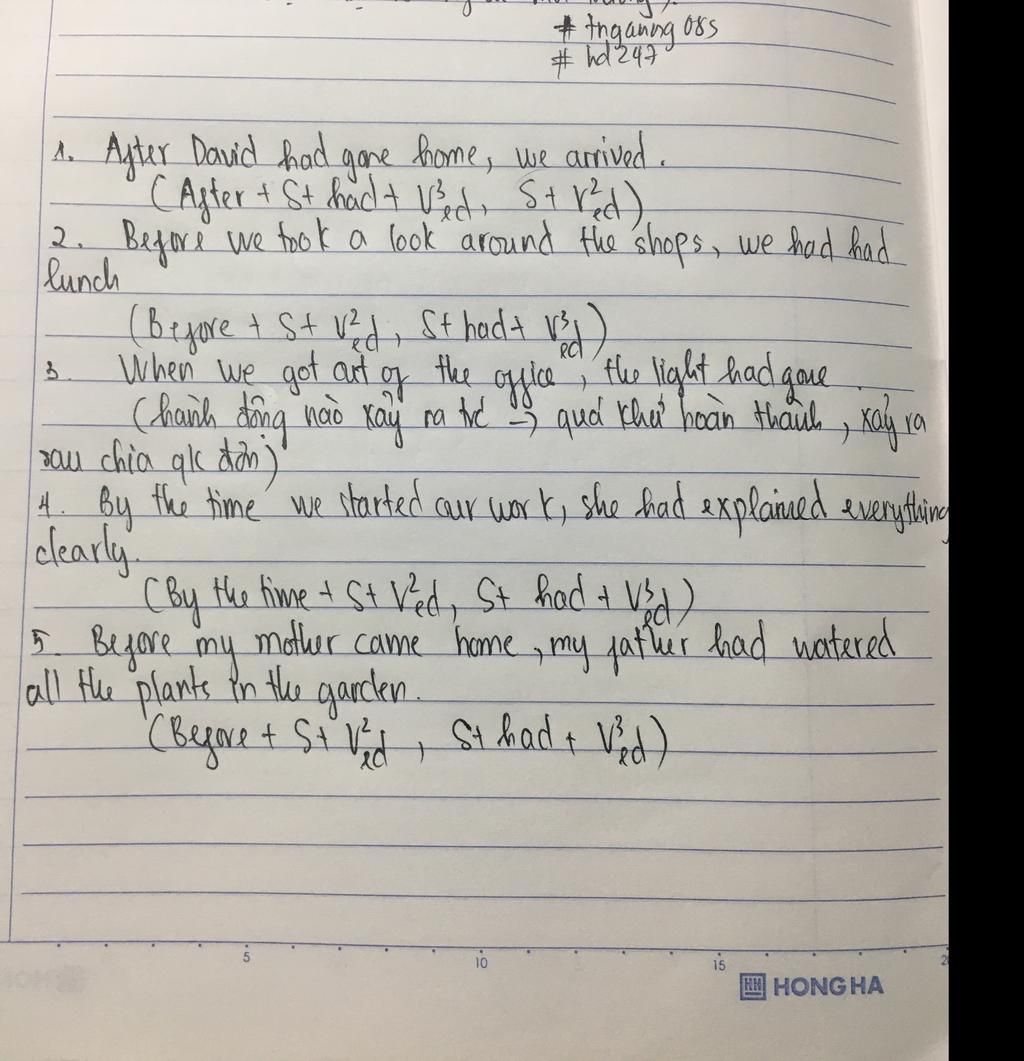 # tnganng 08s
# hd247
1. After David had gone home, we arrived.
(After + S + had + V3ed, S + V2ed)
2. Before we took a look around the shops, we had had
lunch
(Before + S + V2ed, S + had + V3ed)
3. When we got out of the office, the light had gone.
(hành động nào xảy ra trc -> quá khứ hoàn thành, xảy ra
sau chia qk đơn)
4. By the time we started our work, she had explained everything
clearly.
(By the time + S + V2ed, S + had + V3ed)
5. Before my mother came home, my father had watered
all the plants in the garden.
(Before + S + V2ed, S + had + V3ed)
5 10 15 2
HH HONG HA